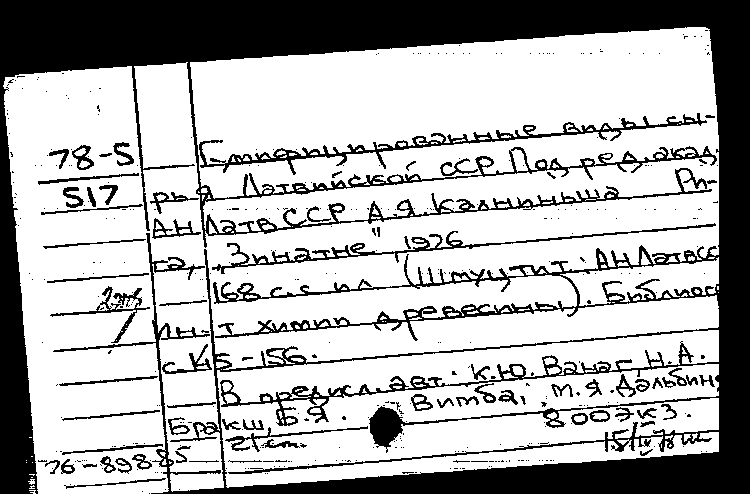 78-5
517
Гумифицированные виды сы-
рья Латвийской ССР. Под ред. акад.
АН Латв ССР А.Я. Калниньша Ри-
га, „Зинатне", 1976.
168 с. с ил (Шмуцтит.: АН Латв СС
Ин-т химии древесины). Библиогр
с. 145-156.
В предисл. авт. К.Ю. Ванаг, Н.А.
Бракш, Б.Я. Витба, М.Я. Дальбинь
21 см. 800 экз.
76-89885 15/IV 78